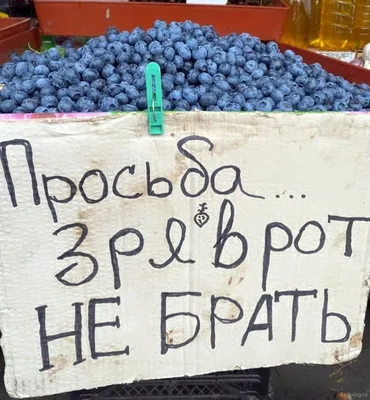 Просьба...
зря в рот
НЕ БРАТЬ